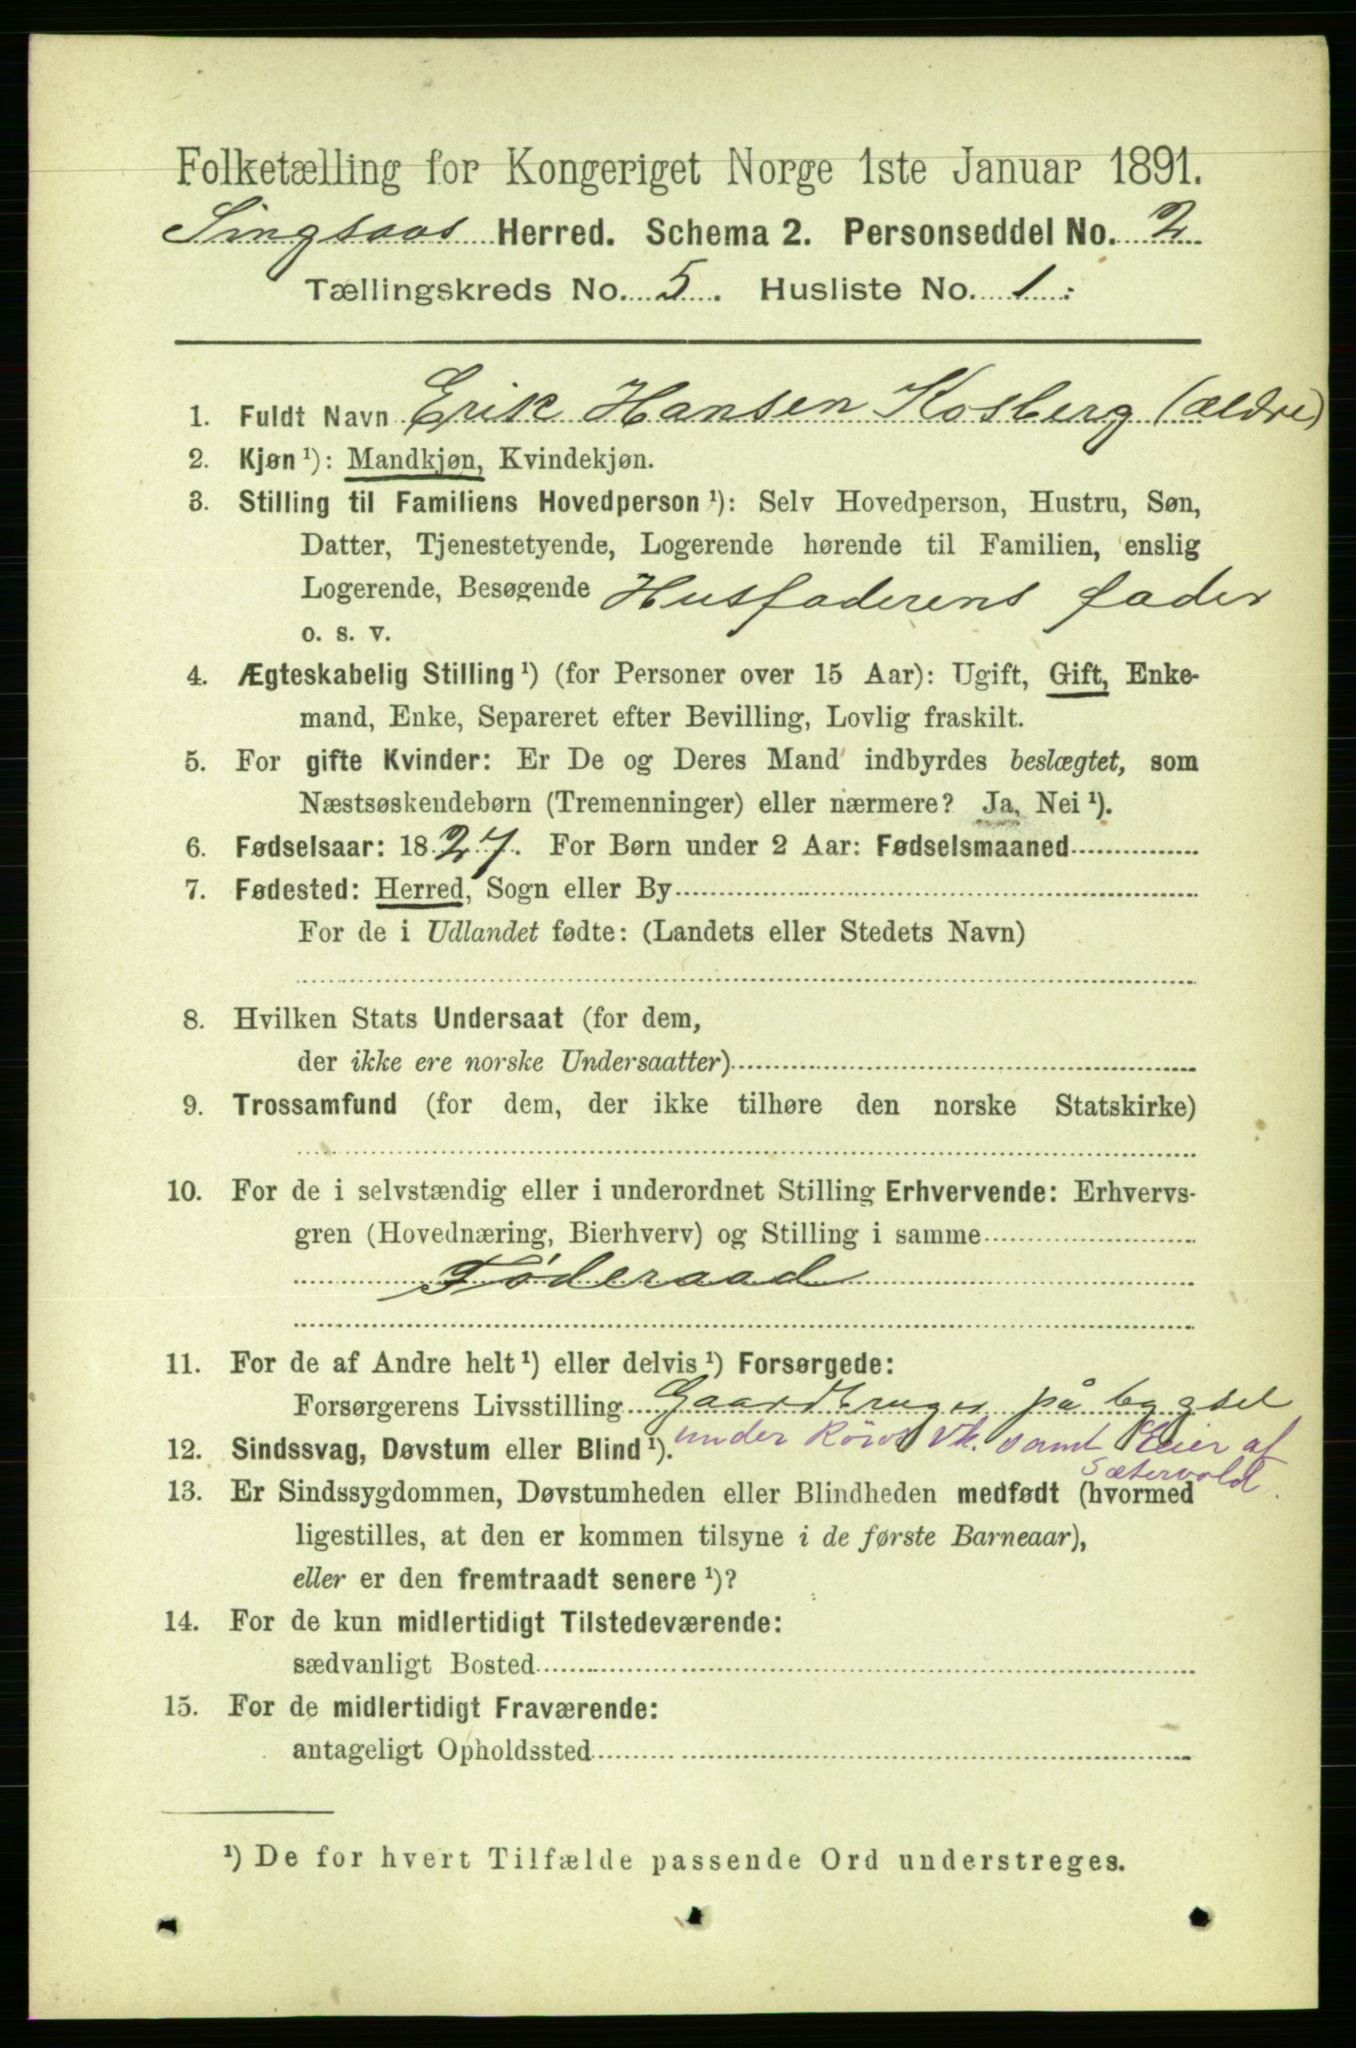 Folketælling for Kongeriget Norge 1ste Januar 1891.
Singsaas Herred. Schema 2. Personseddel No. 2
Tællingskreds No. 5. Husliste No. 1.
1. Fuldt Navn Erik Hansen Kosberg (ældre)
2. Kjøn ¹): Mandkjøn, Kvindekjøn.
3. Stilling til Familiens Hovedperson ¹): Selv Hovedperson, Hustru, Søn,
Datter, Tjenestetyende, Logerende hørende til Familien, enslig
Logerende, Besøgende Husfaderens fader
o. s. v.
4. Ægteskabelig Stilling ¹) (for Personer over 15 Aar): Ugift, Gift, Enke-
mand, Enke, Separeret efter Bevilling, Lovlig fraskilt.
5. For gifte Kvinder: Er De og Deres Mand indbyrdes beslægtet, som
Næstsøskendebørn (Tremenninger) eller nærmere? Ja, Nei ¹).
6. Fødselsaar: 1827. For Børn under 2 Aar: Fødselsmaaned
7. Fødested: Herred, Sogn eller By
For de i Udlandet fødte: (Landets eller Stedets Navn)
8. Hvilken Stats Undersaat (for dem,
der ikke ere norske Undersaatter)
9. Trossamfund (for dem, der ikke tilhøre den norske Statskirke)
10. For de i selvstændig eller i underordnet Stilling Erhvervende: Erhvervs-
gren (Hovednæring, Bierhverv) og Stilling i samme
Føderaad
11. For de af Andre helt ¹) eller delvis ¹) Forsørgede:
Forsørgerens Livsstilling Gaardbruger på bygsel
under Röros Vk. samt Eier af
12. Sindssvag, Døvstum eller Blind ¹).
Sætervold.
13. Er Sindssygdommen, Døvstumheden eller Blindheden medfødt (hvormed
ligestilles, at den er kommen tilsyne i de første Barneaar),
eller er den fremtraadt senere ¹)?
14. For de kun midlertidigt Tilstedeværende:
sædvanligt Bosted
15. For de midlertidigt Fraværende:
antageligt Opholdssted
¹) De for hvert Tilfælde passende Ord understreges.